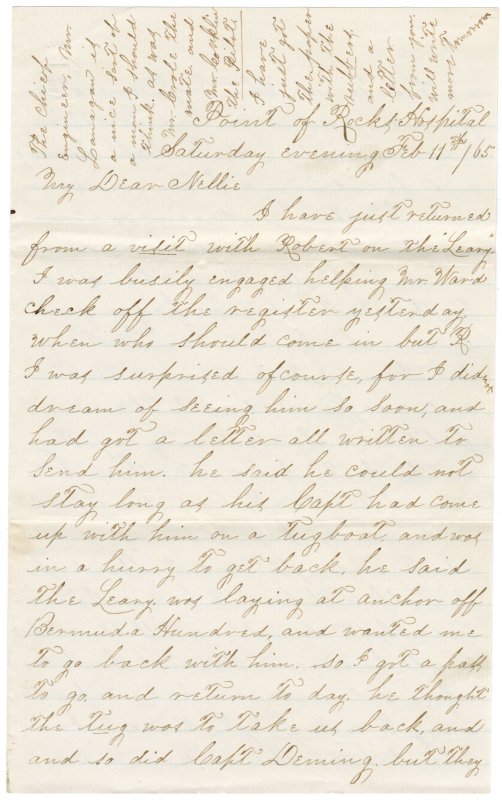 Point of Rocks, Hospital
Saturday evening Feb 11th/65.
My Dear Nellie
I have just returned
from a visit with Robert on the "Leary"
I was busily engaged helping Mr. Ward
check off the register yesterday,
when who should come in but R.
I was surprised of course, for I did not
dream of seeing him so soon, and
had got a letter all written to
send him. he said he could not
stay long as his Capt had come
up with him on a tugboat, and was
in a hurry to get back, he said
the Leary, was laying at anchor off
Bermuda Hundred, and wanted me
to go back with him. so I got a pass
to go, and return to day, he thought
the tug was to take us back, and
and so did Capt Deming. but they
The Chief
Engineer, Mr.
Lanagan is
a nice sort of
a man, I should
think. as was
Mr. Crosbe the
mate and
Mr. Conklin
the Pilot.
I have
just got
the paper
with the
rubbers.
and a
letter
from you.
will write
more tomorrow